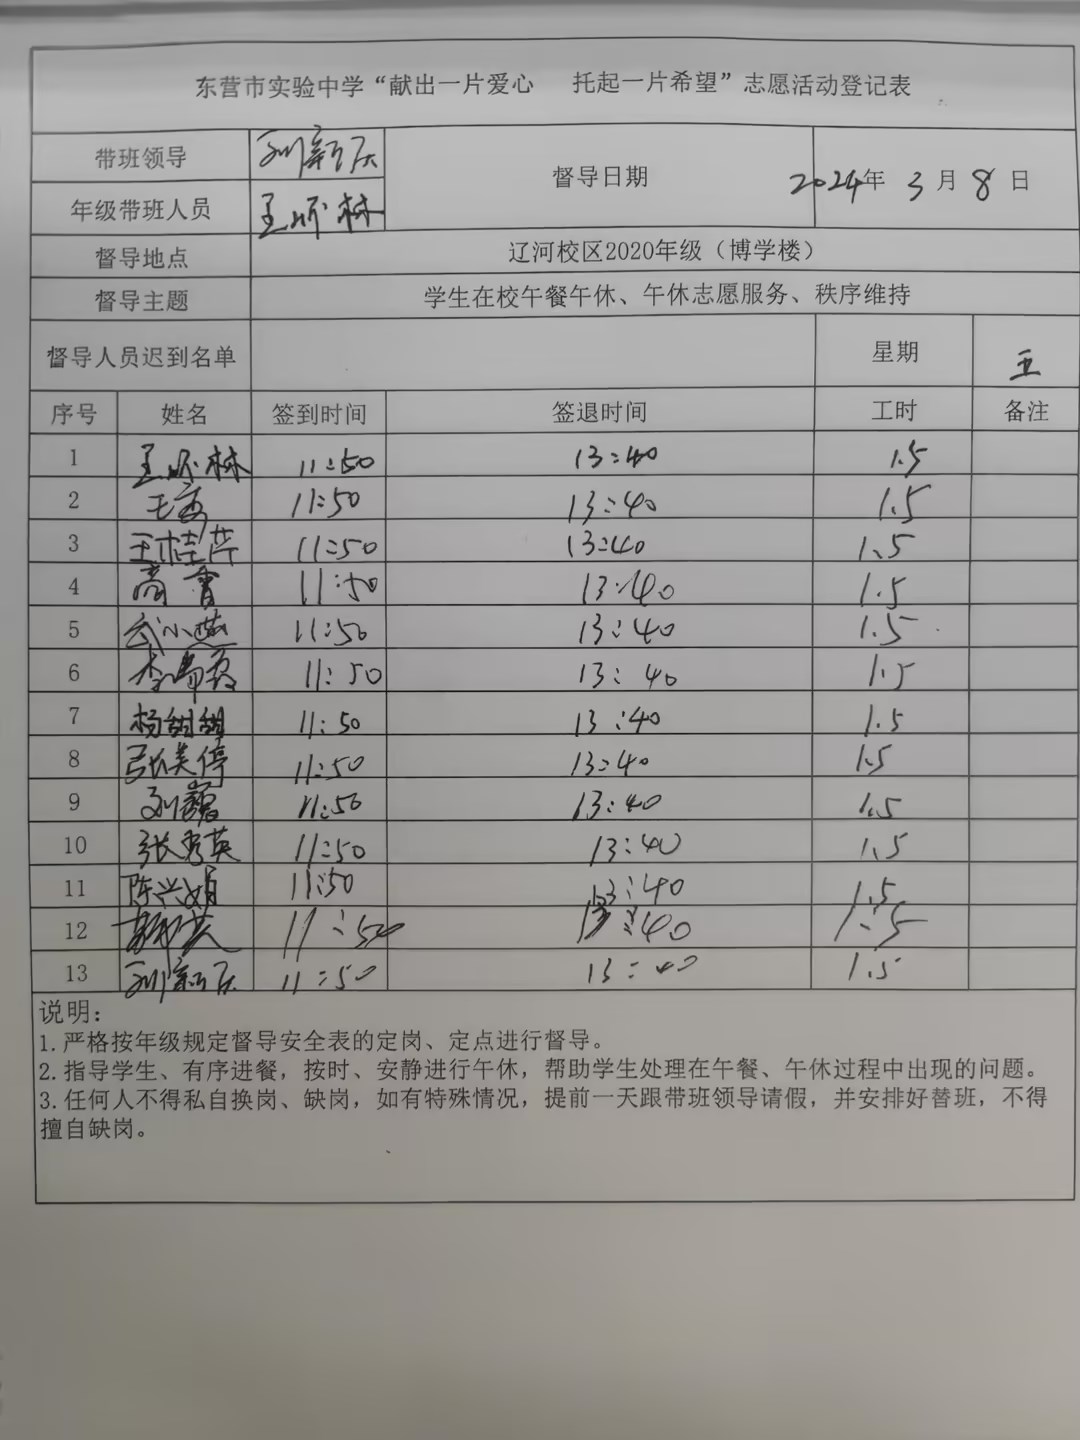 东营市实验中学“献出一片爱心 托起一片希望”志愿活动登记表
带班领导 刘新庆 督导日期 2024年 3月 8日
年级带班人员 王怀林
督导地点 辽河校区2020年级（博学楼）
督导主题 学生在校午餐午休、午休志愿服务、秩序维持
督导人员迟到名单 星期 五
序号 姓名 签到时间 签退时间 工时 备注
1 王怀林 11:50 13:40 1.5
2 11:50 13:40 1.5
3 王桂芹 11:50 13:40 1.5
4 11:50 13:40 1.5
5 武小燕 11:50 13:40 1.5
6 11:50 13:40 1.5
7 杨甜甜 11:50 13:40 1.5
8 张美停 11:50 13:40 1.5
9 11:50 13:40 1.5
10 张秀英 11:50 13:40 1.5
11 陈兴娟 11:50 13:40 1.5
12 11:50 13:40 1.5
13 刘新庆 11:50 13:40 1.5
说明：
1.严格按年级规定督导安全表的定岗、定点进行督导。
2.指导学生、有序进餐，按时、安静进行午休，帮助学生处理在午餐、午休过程中出现的问题。
3.任何人不得私自换岗、缺岗，如有特殊情况，提前一天跟带班领导请假，并安排好替班，不得
擅自缺岗。